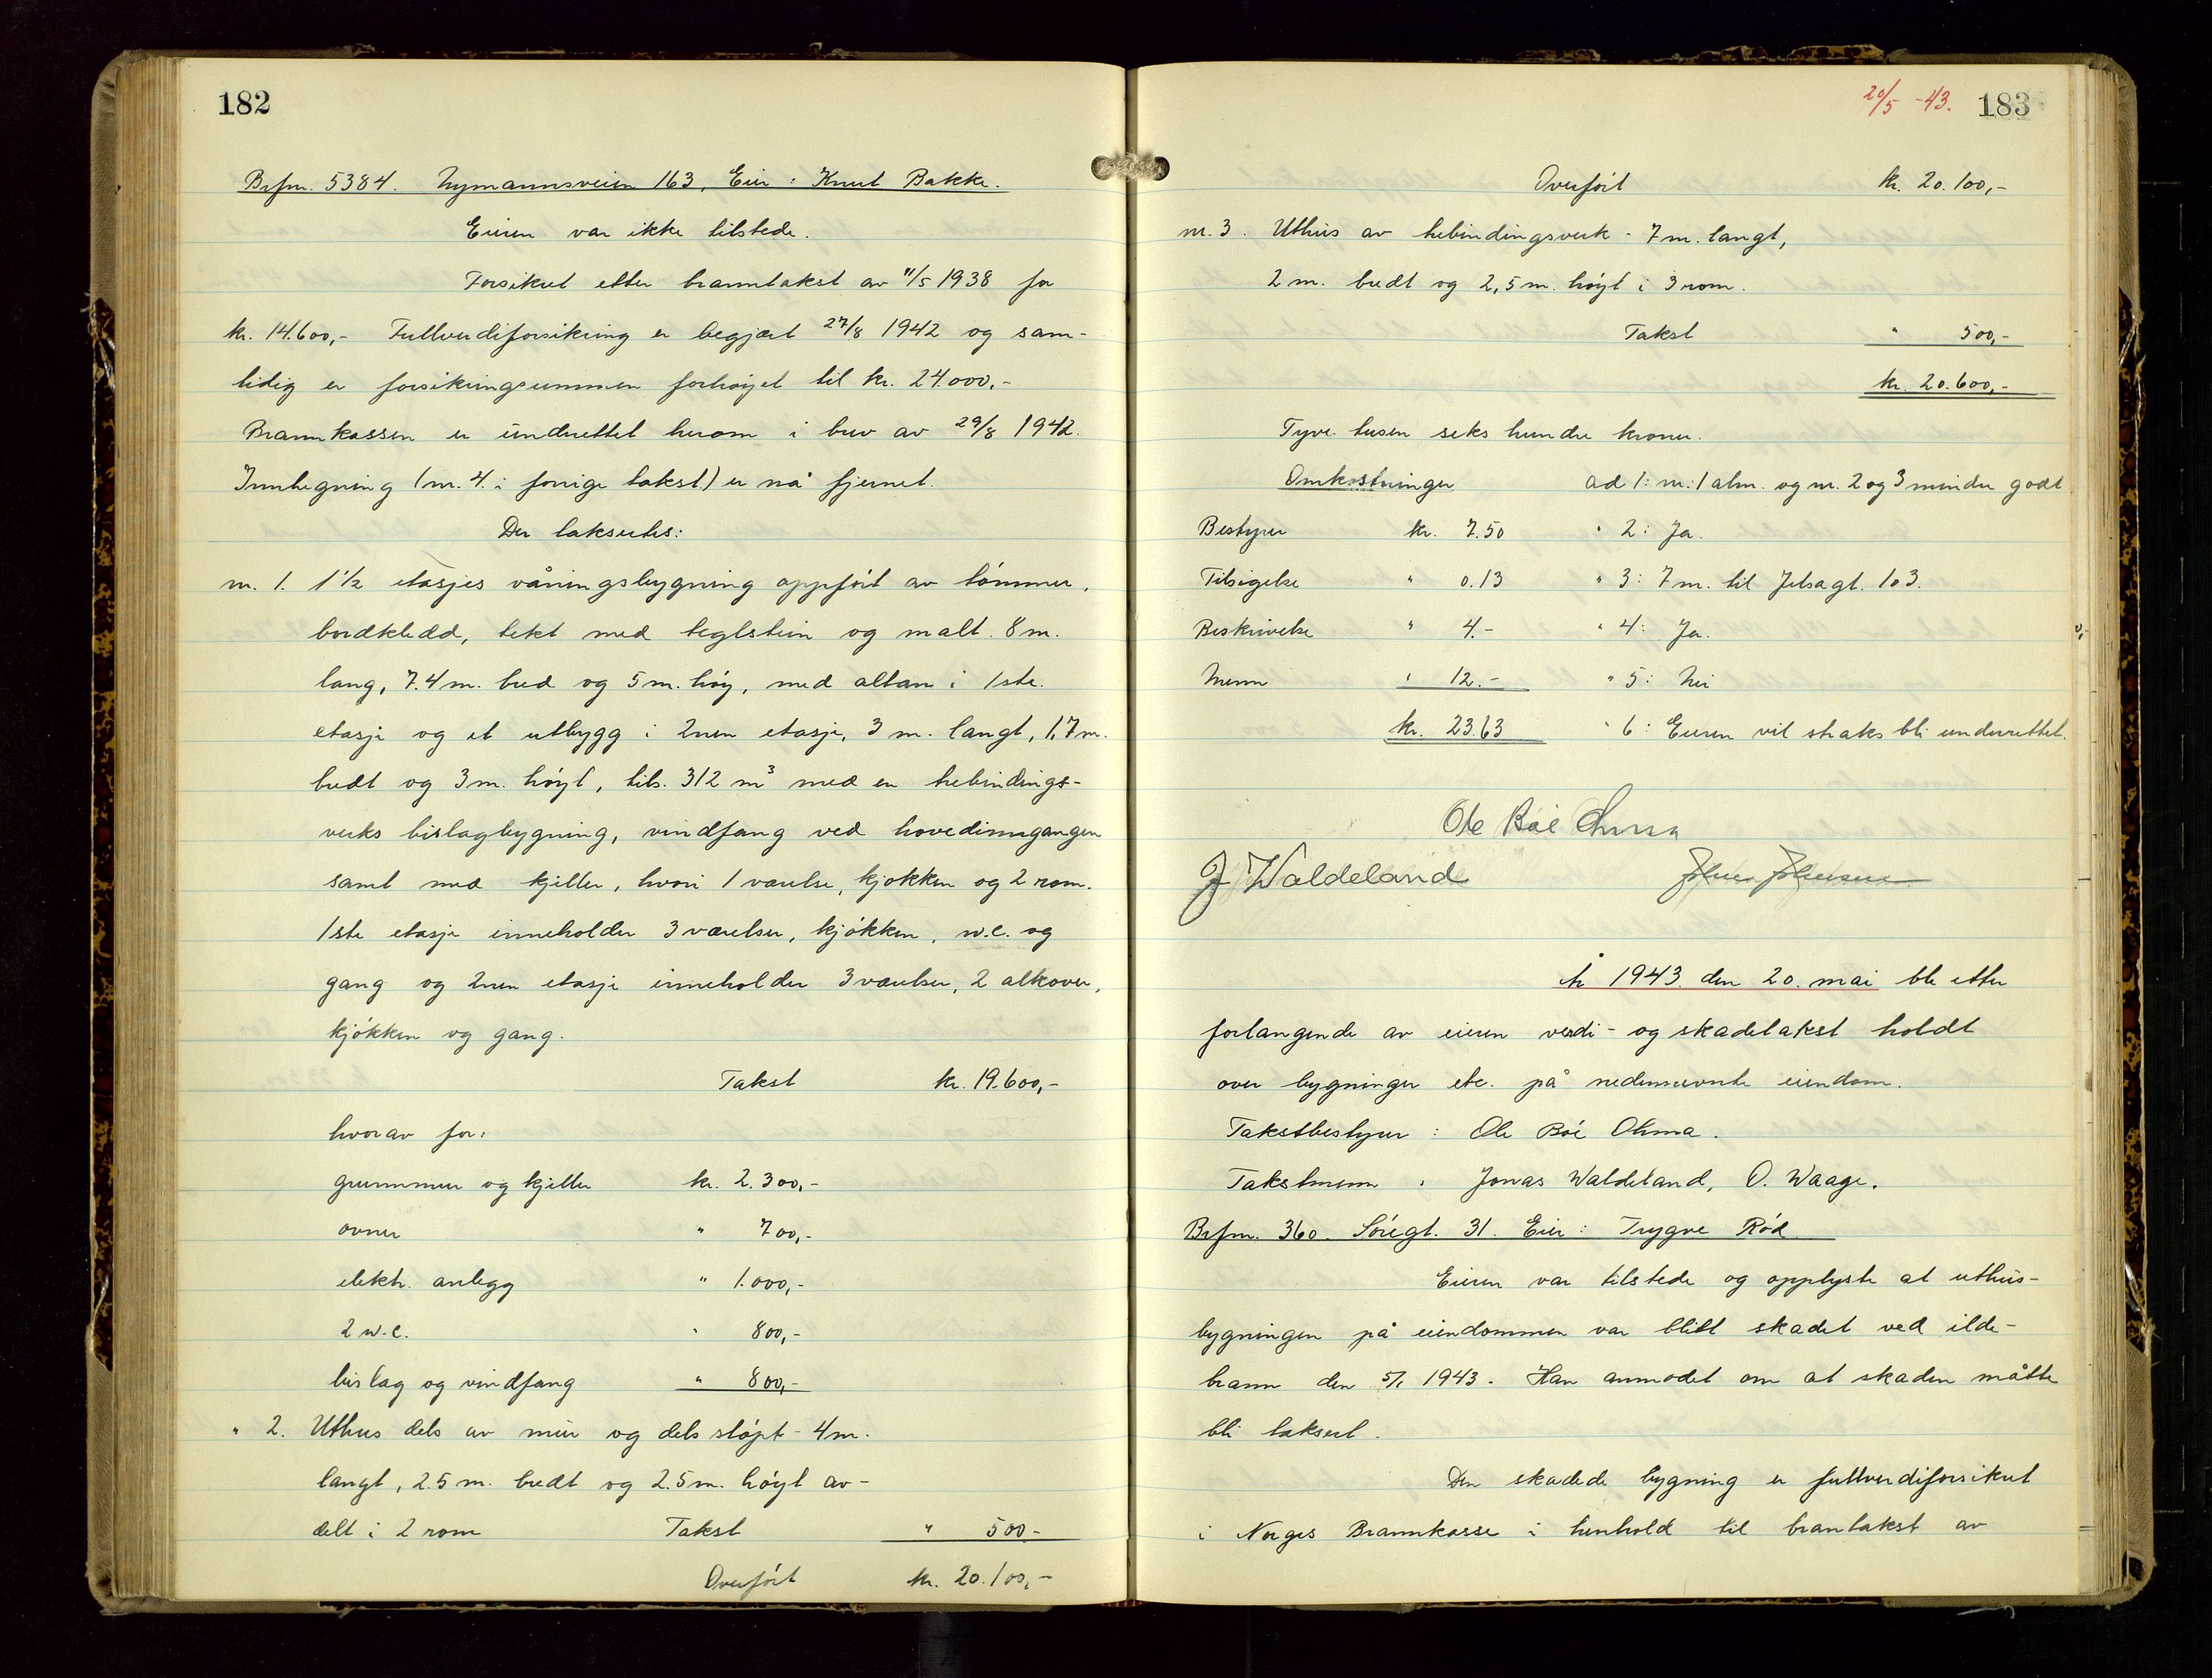 182
Brfnr. 5384. Nymannsveien 163, Eier: Knut Bakke.
Eieren var ikke tilstede.
Forsikret etter branntakst av 11/5 1938 for
kr. 14.600,- Fullverdiforsikring er begjært 27/8 1942 og sam-
tidig er forsikringssummen forhøyet til kr. 24.000,-
Brannkassen er underrettet herom i brev av 29/8 1942.
Innhegning (nr. 4 i forrige takst) er nå fjernet.
Der takseres:
nr. 1. 1 1/2 etasjes våningsbygning oppført av tømmer,
bordkledd, tekt med teglstein og malt. 8 m.
lang, 7.4 m. bred og 5 m. høy, med altan i 1ste.
etasje og et utbygg i 2nen etasje, 3 m. langt, 1,7 m.
bredt og 3 m. høyt, tils. 312 m³ med en trebindings-
verks bislagbygning, vindfang ved hovedinngangen
samt med kjeller, hvori 1 værelse, kjøkken og 2 rom.
1ste etasje inneholder 3 værelser, kjøkken, w.c. og
gang og 2nen etasje inneholder 3 værelser, 2 alkover,
kjøkken og gang.
Takst kr. 19.600,-
hvorav for:
grunnmur og kjeller kr. 2.300,-
ovner " 700,-
elektr. anlegg " 1.000,-
2 w.c. " 800,-
bislag og vindfang " 800,-
" 2. Uthus dels av mur og dels støpt - 4 m.
langt, 2.5 m. bredt og 2.5 m. høyt av-
delt i 2 rom Takst " 500-
Overført kr. 20.100,-
20/5 -43. 183
Overført kr. 20.100,-
nr. 3. Uthus av trebindingsverk - 7 m. langt,
2 m. bredt og 2,5 m. høyt i 3 rom.
Takst " 500,-
kr. 20.600,-
Tyve tusen seks hundre kroner.
Omkostninger ad 1: nr. 1 alm. og nr. 2 og 3 mindre godt
Bestyrer kr. 7.50 " 2: Ja.
Tilsigelse " 0.13 " 3: 7 m. til Jelsagt. 103.
Beskrivelse " 4.- " 4: Ja.
Menn " 12.- " 5: Nei
kr. 23.63 " 6: Eieren vil straks bli underrettet.
Ole Bøe Ohma
J Waldeland
År 1943 den 20. mai ble etter
forlangende av eieren verdi- og skadetakst holdt
over bygninger etc. på nedennevnte eiendom.
Takstbestyrer: Ole Bøe Ohma.
Takstmenn: Jonas Waldeland, O. Waage.
Brfnr. 360. Søregt. 31. Eier: Trygve Rød
Eieren var tilstede og opplyste at uthus-
bygningen på eiendommen var blitt skadet ved ilde-
brann den 5/1 1943. Han anmodet om at skaden måtte
bli taksert.
Den skadede bygning er fullverdiforsikret
i Norges Brannkasse i henhold til brantakst av